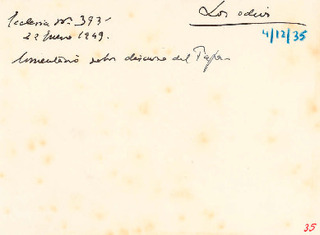 Los odios
Ecclesia nº 393-
22 Enero 1949.
4/12/35
Comentario sobre discurso del Papa.
35